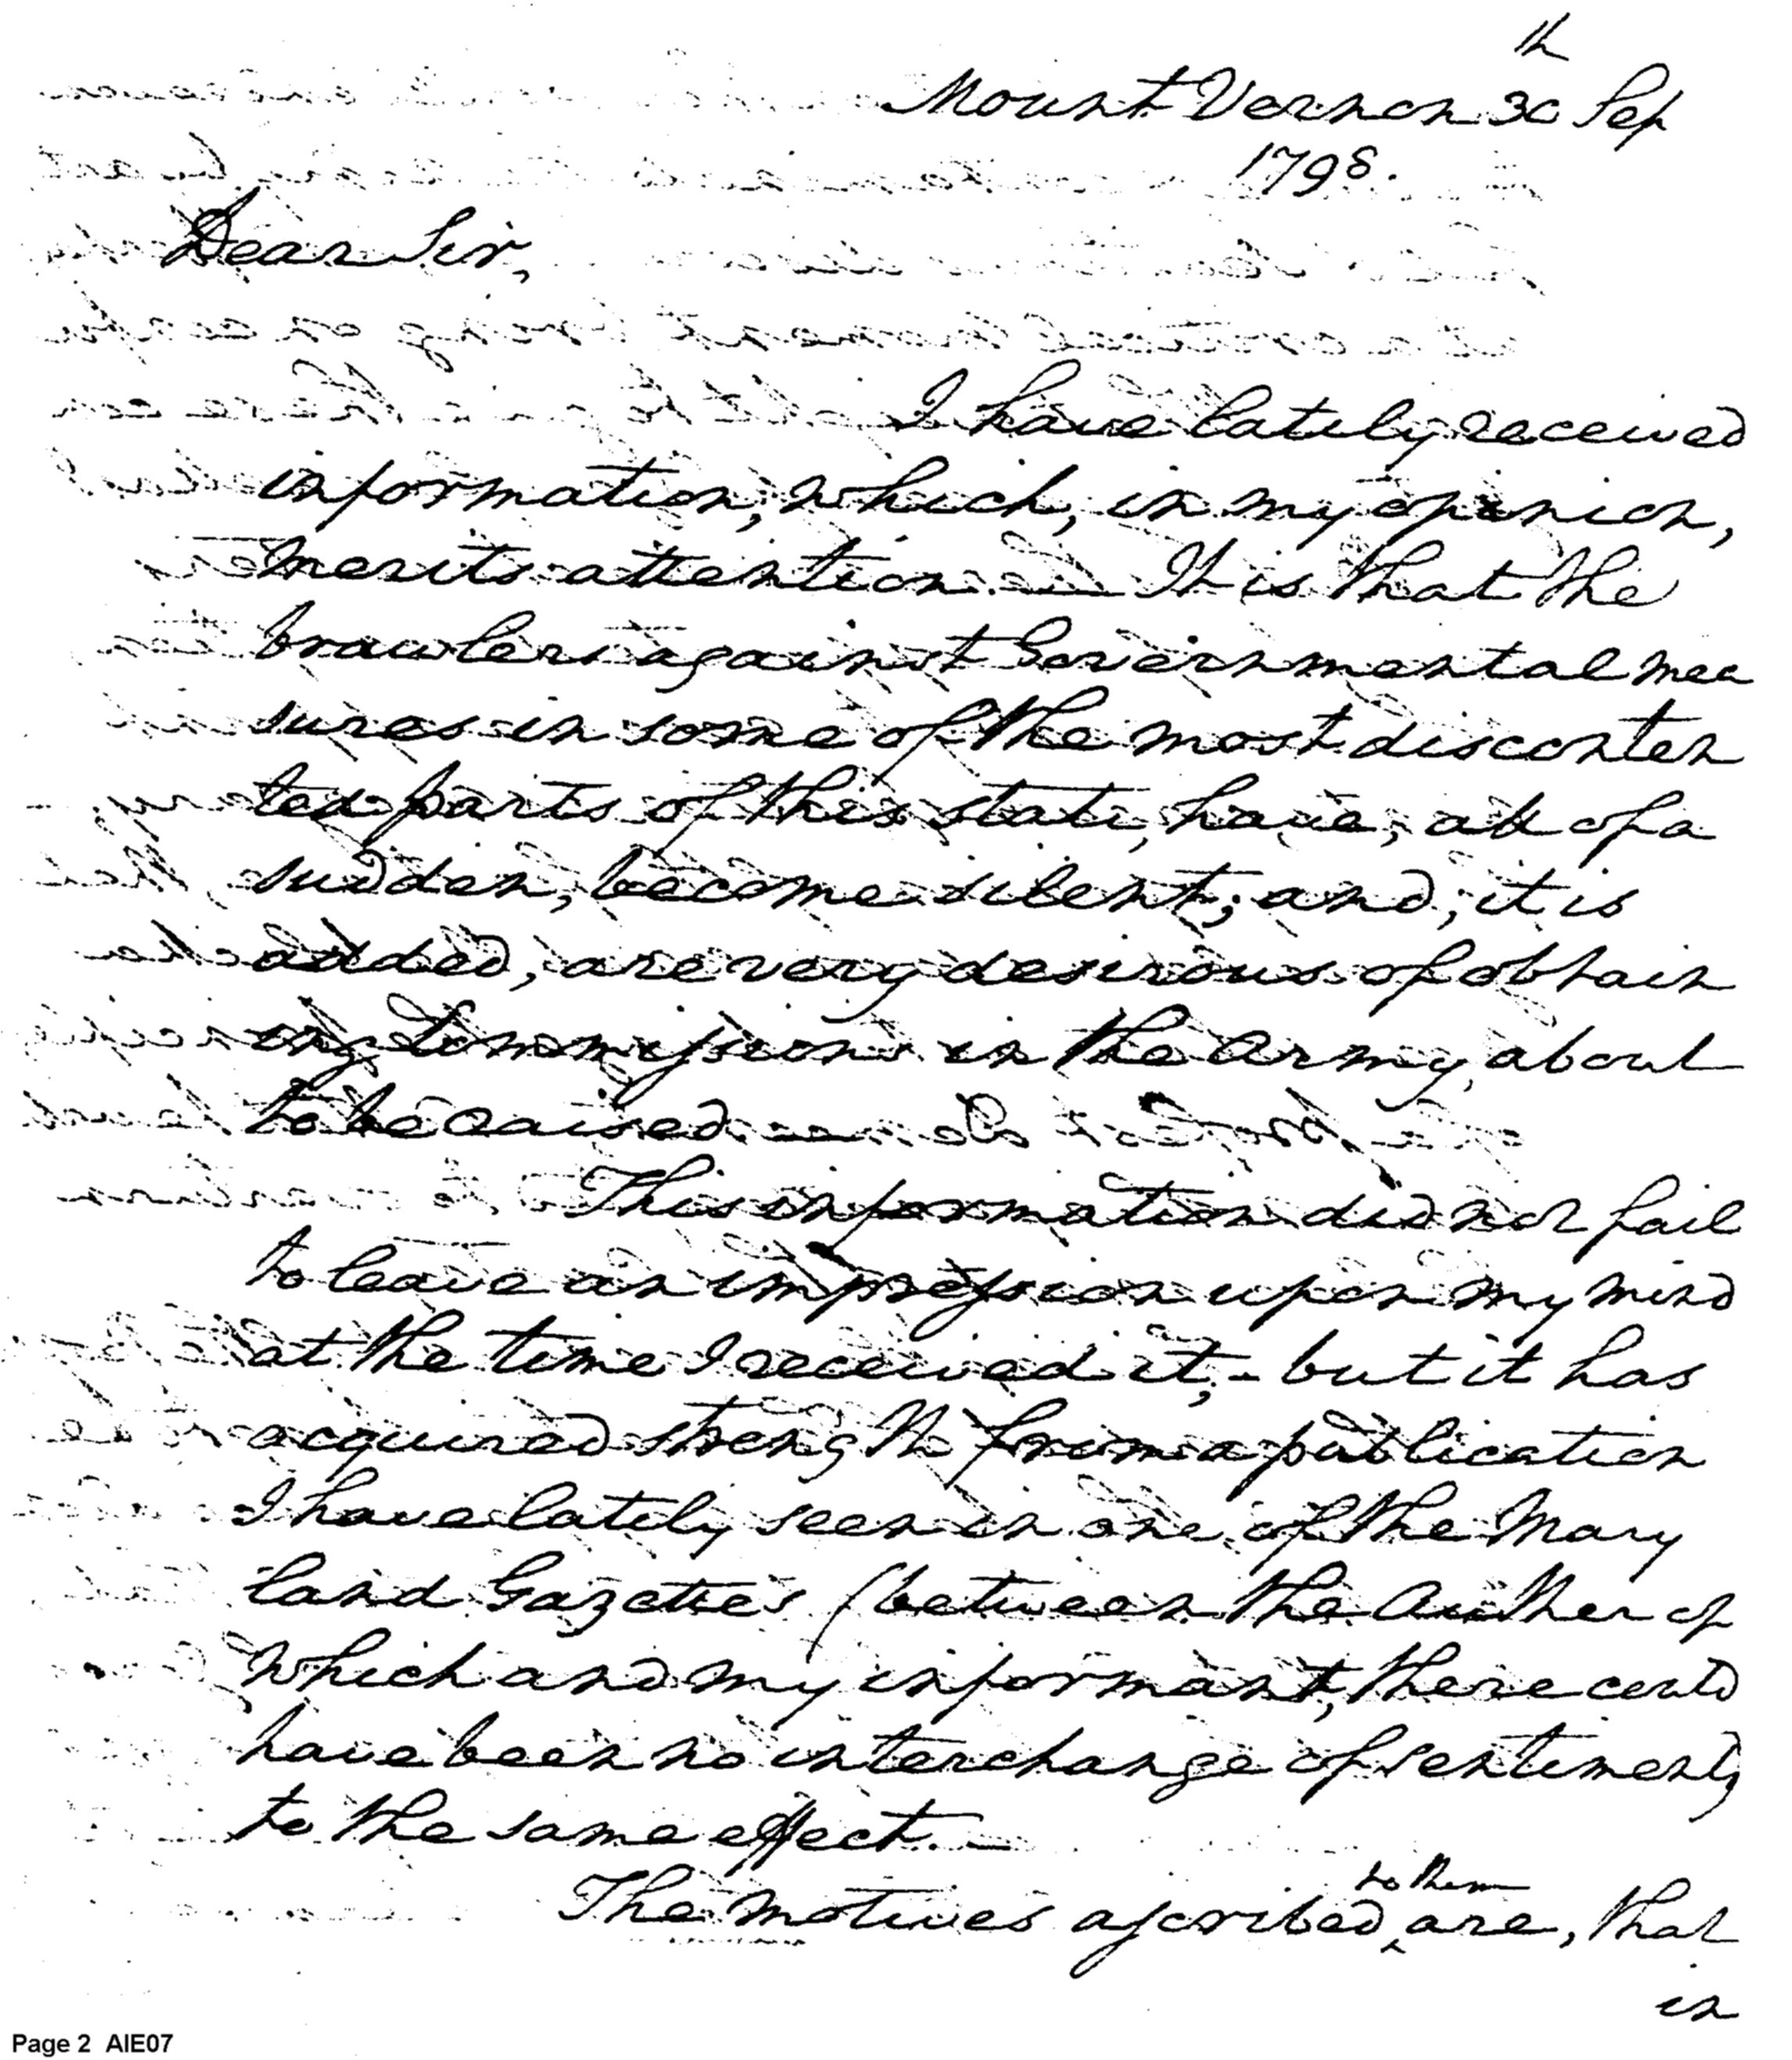 th
Mount Vernon 30 Sep
1798.
Dear Sir,
I have lately received
information, which, in my opinion,
merits attention. — It is that the
brawlers against Governmental mea
sures in some of the most disconten
ted parts of this state, have, all of a
sudden, become silent; and, it is
added, are very desirous of obtain
ing Commissions in the Army, about
to be raised.
This information did not fail
to leave an impression upon my mind
at the time I received it; - but it has
acquired strength from a publication
I have lately seen in one of the Mary
land Gazettes (between the Auther of
which and my informant, there could
have been no interchange of sentiments)
to the same effect. —
to them
The motives ascribed ^ are, that
in
Page 2 AIE07